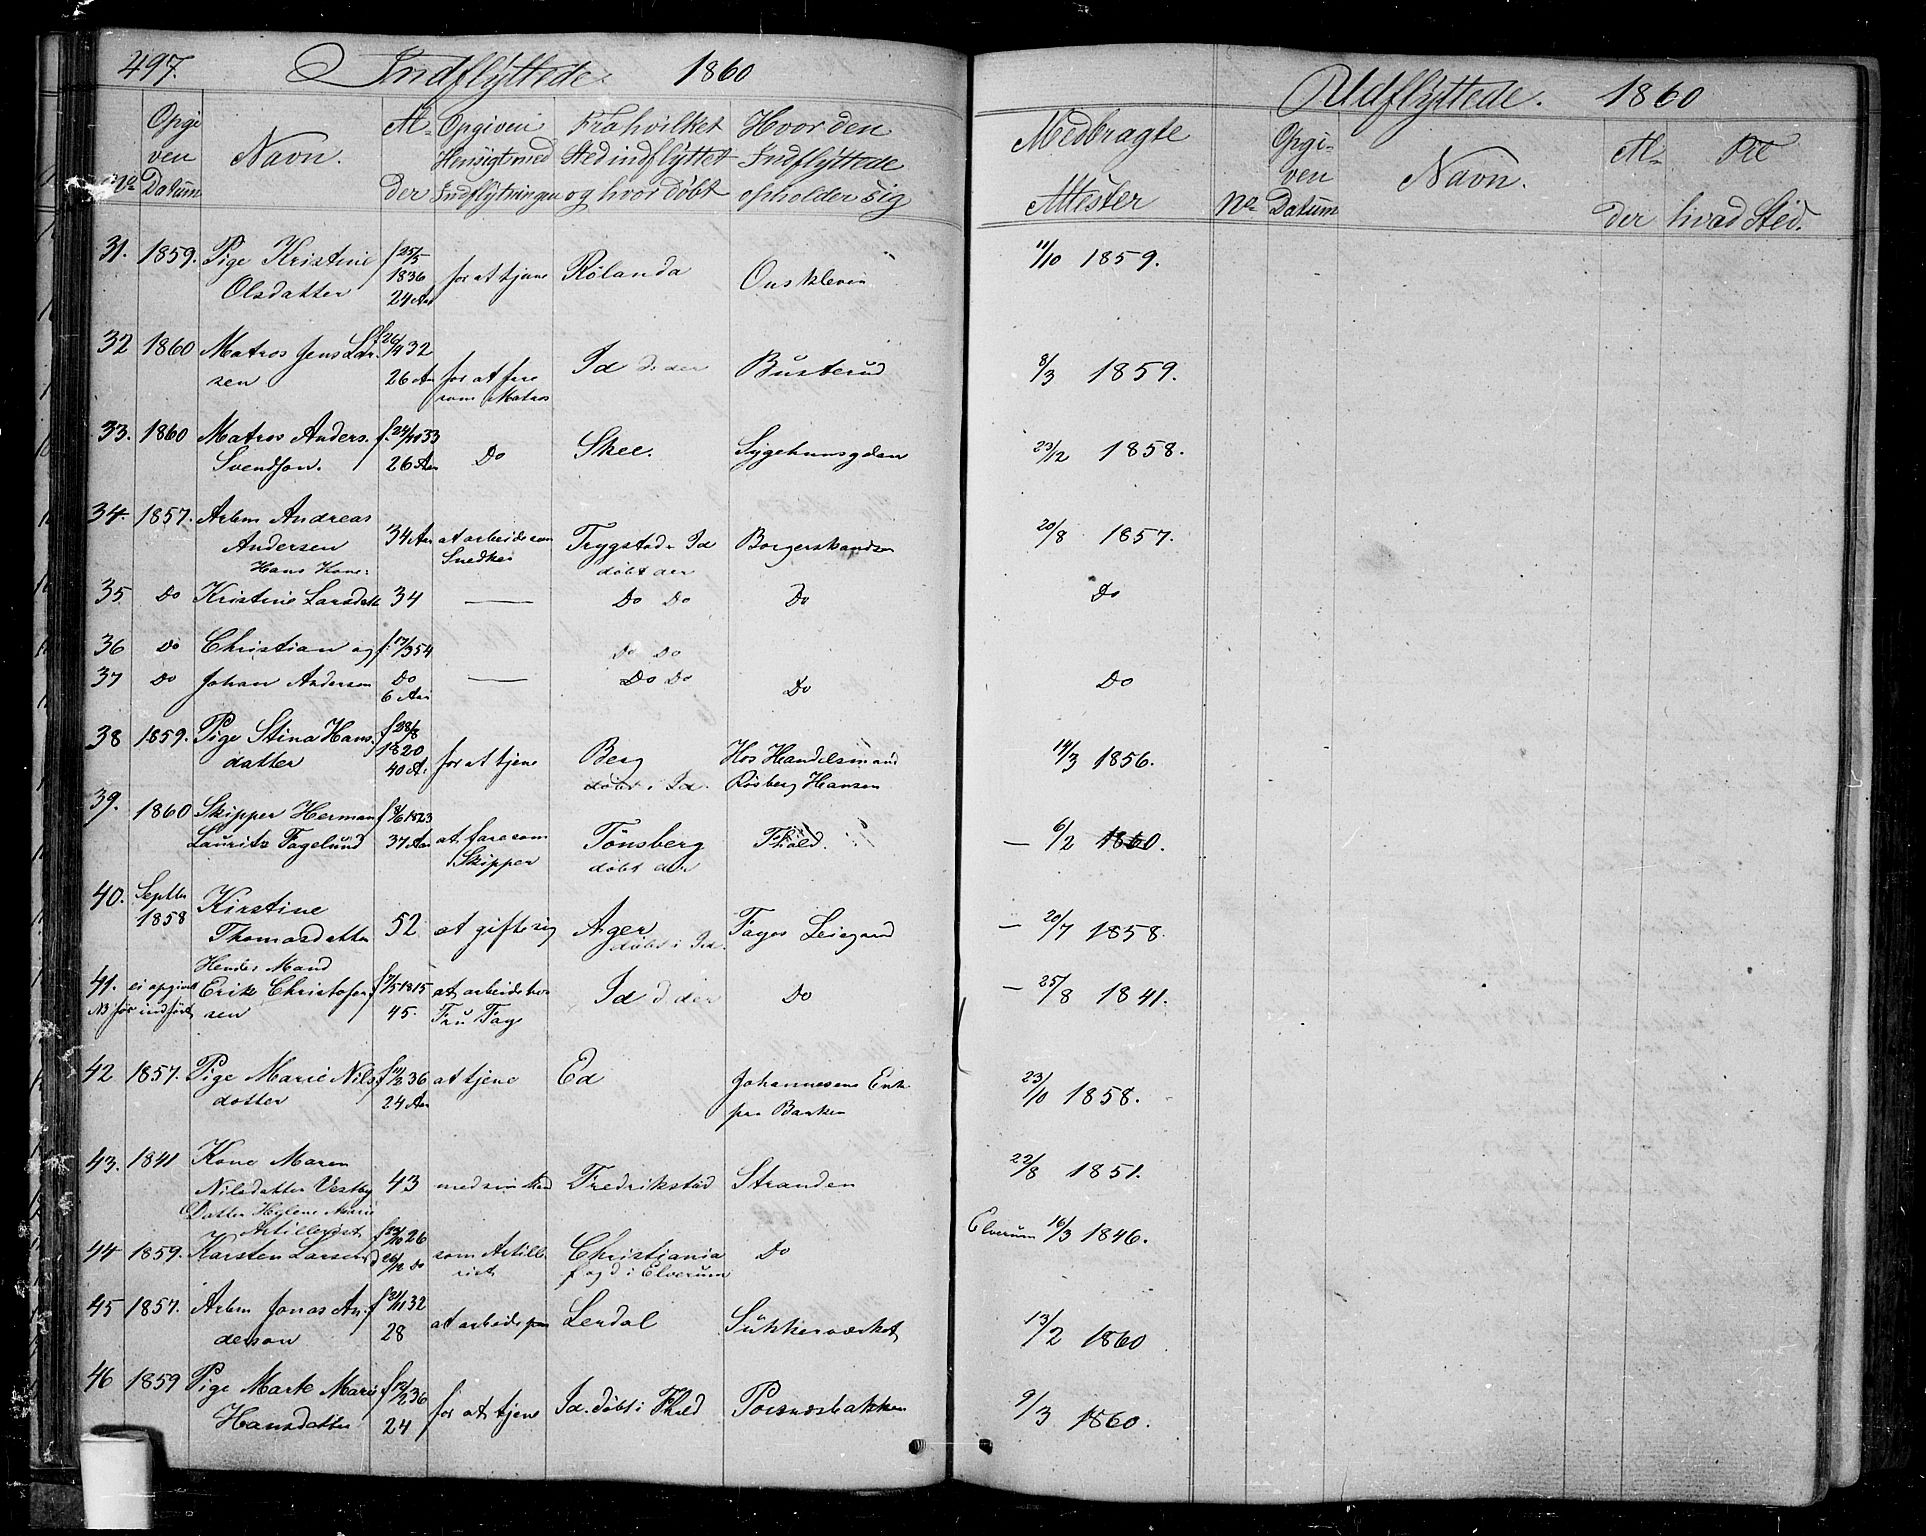 497. Indflyttede. 1860
No Opgiven Datum Navn. Alder Opgiven Hensigt med Indflytningen Fra hvilket Sted indflyttet og hvor døbt Hvor den Indflyttede opholder sig Medbragte Attester
31. 1859. Pige Kristine Olsdatter f 25/5 1836 24 Aar for at tjene Rølanda 11/10 1859.
32 1860 Matros Jens Larsen f 26/4 32 26 Aar for at fare som Matros Id Busterud 8/3 1859.
33. 1860 Matros Anders Svendson. 33 26 Aar Do Skee. 23/12 1858.
34. 1857. Arbm Andreas Andersen 34 Aar at arbeide som Snedker Trygstad Id døbt der 20/8 1857.
Hans Kone:
35 Do Kristine Larsdatt 34 — Do Do Do Do
36 Do Christian og f. 17/3 54 Do Do
37 Do Johan Anderson Do 6 Aar — Do Do Do Do
38 1859. Pige Stina Hansdatter f 28/8 1820 40 A. for at tjene Berg døbt i Id. Hos Handelsmand Røsberg Hansen 14/3 1856.
39. 1860 Skipper Herman Laurits Fagelund f 8/6 1823 37 Aar at fare som Skipper Tönsberg døbt der Fhald. — 6/2 1860.
40. Septbr 1858 Kirstine Thomasdatter 52 at gifte sig Ager døbt i Id. Fayes — 20/7 1858.
Hendes Mand
41. ei opgivet Erik Christofersen f 7/5 1815 45. at arbeide hos Fru Faye Id d der Do — 25/8 1841.
NB før indført
42 1857. Pige Marie Nilsdatter 36 24 Aar at tjene Ed Johannesens Enk. paa Banken 23/10 1858.
43. 1841 Kone Maren Nilsdatter Vestby 43 med sin Fredrikstad Stranden 22/8 1851.
Datter Marie
Artillerist
44 1859. Karsten Larsen 26 som Artillerist Christiania f og d i Elverum Do Elverum 16/3 1846.
45 1857. Arbm Jonas Anderson f 21/11 32 28 at arbeide paa Lerdal Sukkerværket 13/2 1860
46 1859 Pige Marte Marie Hansdatter f 12/2 36 24 for at tjene Id. døbt i Fhald 9/3 1860.
Udflyttede. 1860
No Opgiven Datum Navn. Alder Til hvad Sted.